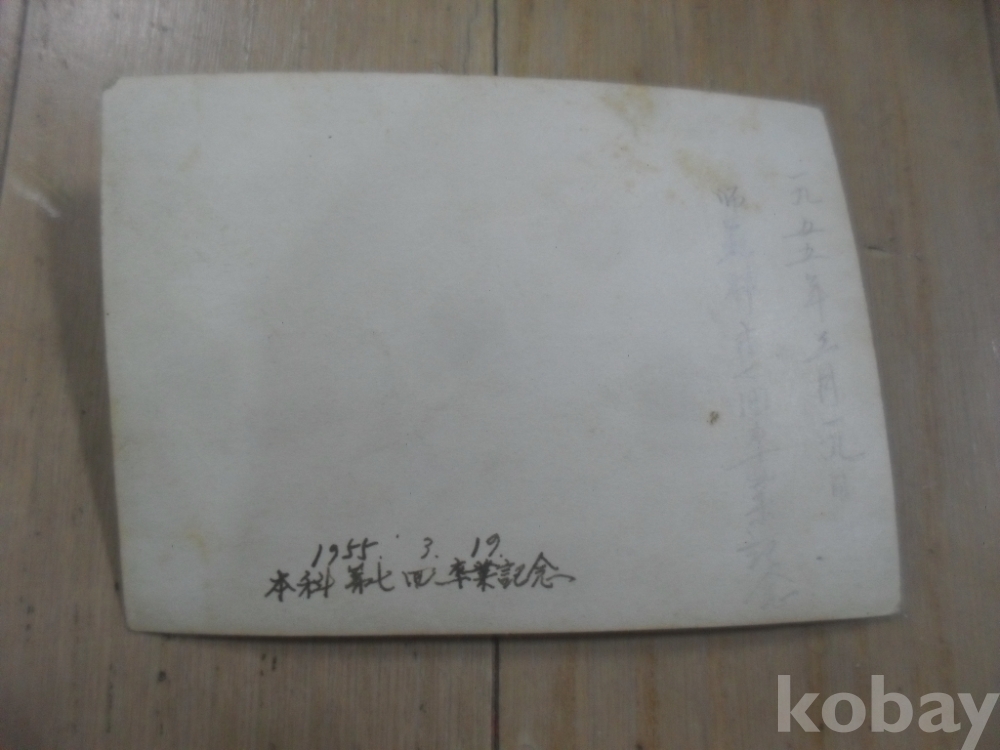 一九五五年 三月 一九日
科 第七回 卒業 記念
1955. 3. 19.
本科 第七回 卒業記念
kobay